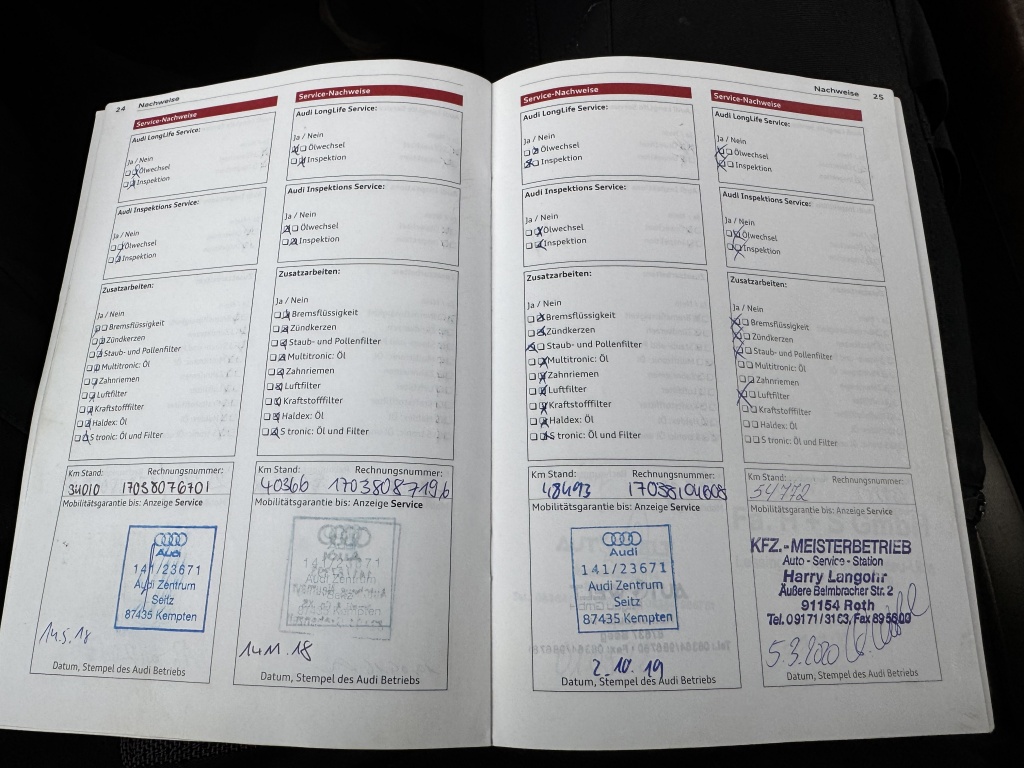 24 Nachweise
Service-Nachweise
Audi LongLife Service:
Ja / Nein
Ölwechsel
Inspektion
Audi Inspektions Service:
Ja / Nein
Ölwechsel
Inspektion
Zusatzarbeiten:
Ja / Nein
Bremsflüssigkeit
Zündkerzen
Staub- und Pollenfilter
Multitronic: Öl
Zahnriemen
Luftfilter
Kraftstofffilter
Haldex: Öl
S tronic: Öl und Filter
Km Stand: Rechnungsnummer:
34010 17038076701
Mobilitätsgarantie bis: Anzeige Service
Audi
141/23671
Audi Zentrum
Seitz
87435 Kempten
14.5.18
Datum, Stempel des Audi Betriebs
Service-Nachweise
Audi LongLife Service:
Ja / Nein
Ölwechsel
Inspektion
Audi Inspektions Service:
Ja / Nein
Ölwechsel
Inspektion
Zusatzarbeiten:
Ja / Nein
Bremsflüssigkeit
Zündkerzen
Staub- und Pollenfilter
Multitronic: Öl
Zahnriemen
Luftfilter
Kraftstofffilter
Haldex: Öl
S tronic: Öl und Filter
Km Stand: Rechnungsnummer:
40366 17038087196
Mobilitätsgarantie bis: Anzeige Service
14.11.18
Datum, Stempel des Audi Betriebs
Nachweise 25
Service-Nachweise
Audi LongLife Service:
Ja / Nein
Ölwechsel
Inspektion
Audi Inspektions Service:
Ja / Nein
Ölwechsel
Inspektion
Zusatzarbeiten:
Ja / Nein
Bremsflüssigkeit
Zündkerzen
Staub- und Pollenfilter
Multitronic: Öl
Zahnriemen
Luftfilter
Kraftstofffilter
Haldex: Öl
S tronic: Öl und Filter
Km Stand: Rechnungsnummer:
48493 17038104608
Mobilitätsgarantie bis: Anzeige Service
Audi
141/23671
Audi Zentrum
Seitz
87435 Kempten
2.10.19
Datum, Stempel des Audi Betriebs
Service-Nachweise
Audi LongLife Service:
Ja / Nein
Ölwechsel
Inspektion
Audi Inspektions Service:
Ja / Nein
Ölwechsel
Inspektion
Zusatzarbeiten:
Ja / Nein
Bremsflüssigkeit
Zündkerzen
Staub- und Pollenfilter
Multitronic: Öl
Zahnriemen
Luftfilter
Kraftstofffilter
Haldex: Öl
S tronic: Öl und Filter
Km Stand: Rechnungsnummer:
54772
Mobilitätsgarantie bis: Anzeige Service
KFZ.-MEISTERBETRIEB
Auto - Service - Station
Harry Langohr
Äußere Belmbracher Str. 2
91154 Roth
Tel. 09171/3163, Fax 895600
5.3.2020
Datum, Stempel des Audi Betriebs